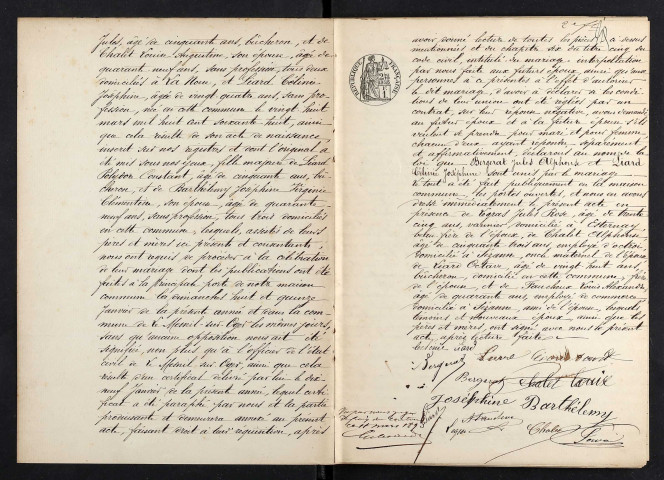 Jules, âgé de cinquante ans, bûcheron, et de
Chalet Louise Augustine, son épouse, âgée de
quarante neuf ans, sans profession, tous deux
domiciliés à et Liard Céline
Joséphine, âgée de vingt quatre ans, sans pro-
fession, née en cette commune le vingt huit
mars mil huit cent soixante huit, ainsi
que cela résulte de son acte de naissance
inscrit sur nos registres et dont l'original a
été mis sous nos yeux, fille majeure de Liard
Polydor Constant, âgé de cinquante ans, bû-
cheron, et de Barthélemy Joséphine Virginie
Clémentine, son épouse, âgée de quarante
neuf ans, sans profession, tous trois domiciliés
en cette commune, lesquels, assistés de leurs
pères et mères ici présents et consentants,
nous ont requis de procéder à la célébration
de leur mariage dont les publications ont été
faites à la principale porte de notre maison
commune les dimanches huit et quinze
janvier de la présente année et dans la com-
mune de le Mesnil sur Oger les mêmes jours,
sans qu'aucune opposition nous ait été
signifiée, non plus qu'à l'officier de l'état
civil de le Mesnil sur Oger, ainsi que cela
résulte d'un certificat délivré par lui le
janvier de la présente année, lequel certi-
ficat a été paraphé par nous et la partie
produisante et demeurera annexé au présent
acte, faisant droit à leur réquisition, après
2e
RÉPUBLIQUE FRANÇAISE
avoir donné lecture de toutes les pièces ci dessus
mentionnées et du chapitre six du titre cinq du
code civil, intitulé du mariage, interpellation
par nous faite aux futurs époux, ainsi que aux
personnes ci présentes à l'effet d'autoriser
le dit mariage, d'avoir à déclarer si les condi-
tions de leur union ont été réglées par un
contrat, sur leur réponse négative, avons demandé
au futur époux et à la future épouse s'ils
veulent se prendre pour mari et pour femme,
chacun d'eux ayant répondu séparément
et affirmativement, déclarons au nom de la
loi que Bergerat Jules Alphonse et Liard
Céline Joséphine sont unis par le mariage.
Le tout a été fait publiquement en la maison
commune, les portes ouvertes, et nous en avons
dressé immédiatement le présent acte en
présence de Jules Rose, âgé de trente
cinq ans, vannier, domicilié à Esternay,
beau frère de l'époux, de Chalet Alphonse,
âgé de cinquante trois ans, employé d'octroi,
domicilié à Sézanne, oncle maternel de l'époux,
de Liard Octave, âgé de vingt huit ans,
bûcheron, domicilié en cette commune, frère
de l'épouse, et de Faucheux Louis Alexandre,
âgé de quarante ans, employé de commerce,
domicilié à Sézanne, ami de l'époux, lesquels
témoins et nouveaux époux, ainsi que les
pères et mères, ont signé avec nous le présent
acte, après lecture faite.
Céline Liard
Bergerat Liard
Bergerat Chalet Louise
Joséphine Barthélemy
Chalet